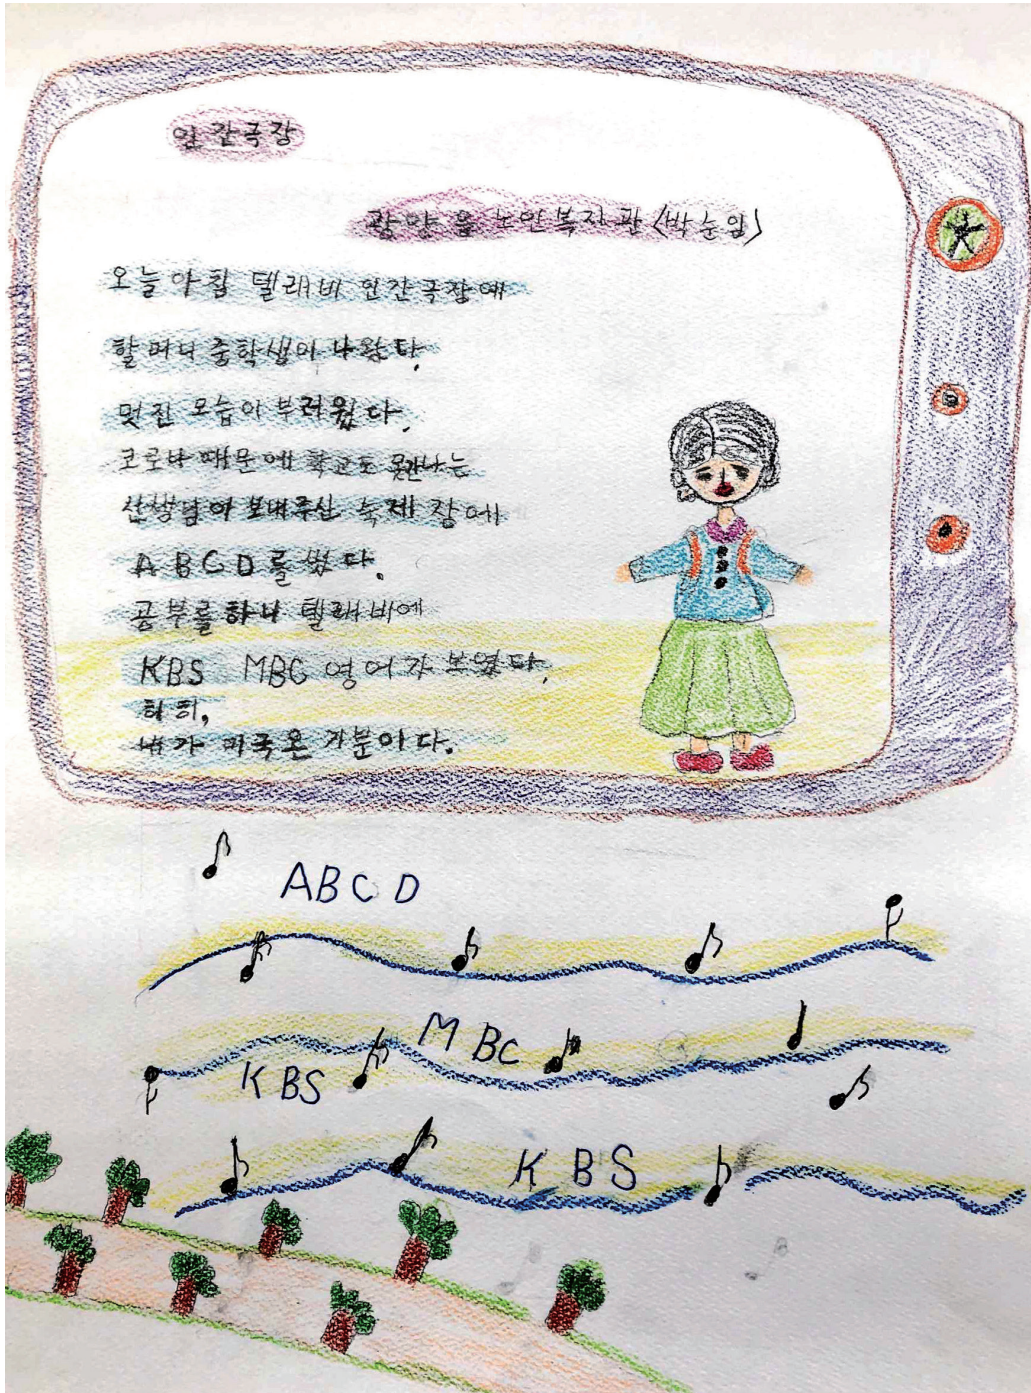 인간극장
광양읍 노인복지관 〈박순임〉
오늘 아침 텔래비 인간극장에
할머니 중학생이 나왔다.
멋진 모습이 부러웠다.
코로나 때문에 학교도 못간나는
선생님이 보내주신 숙제 장에
A B C D 를 썼다.
공부를 하니 텔래비에
KBS MBC 영어가 보였다.
히히,
내가 미국온 기분이다.
ABCD
MBC
KBS
KBS